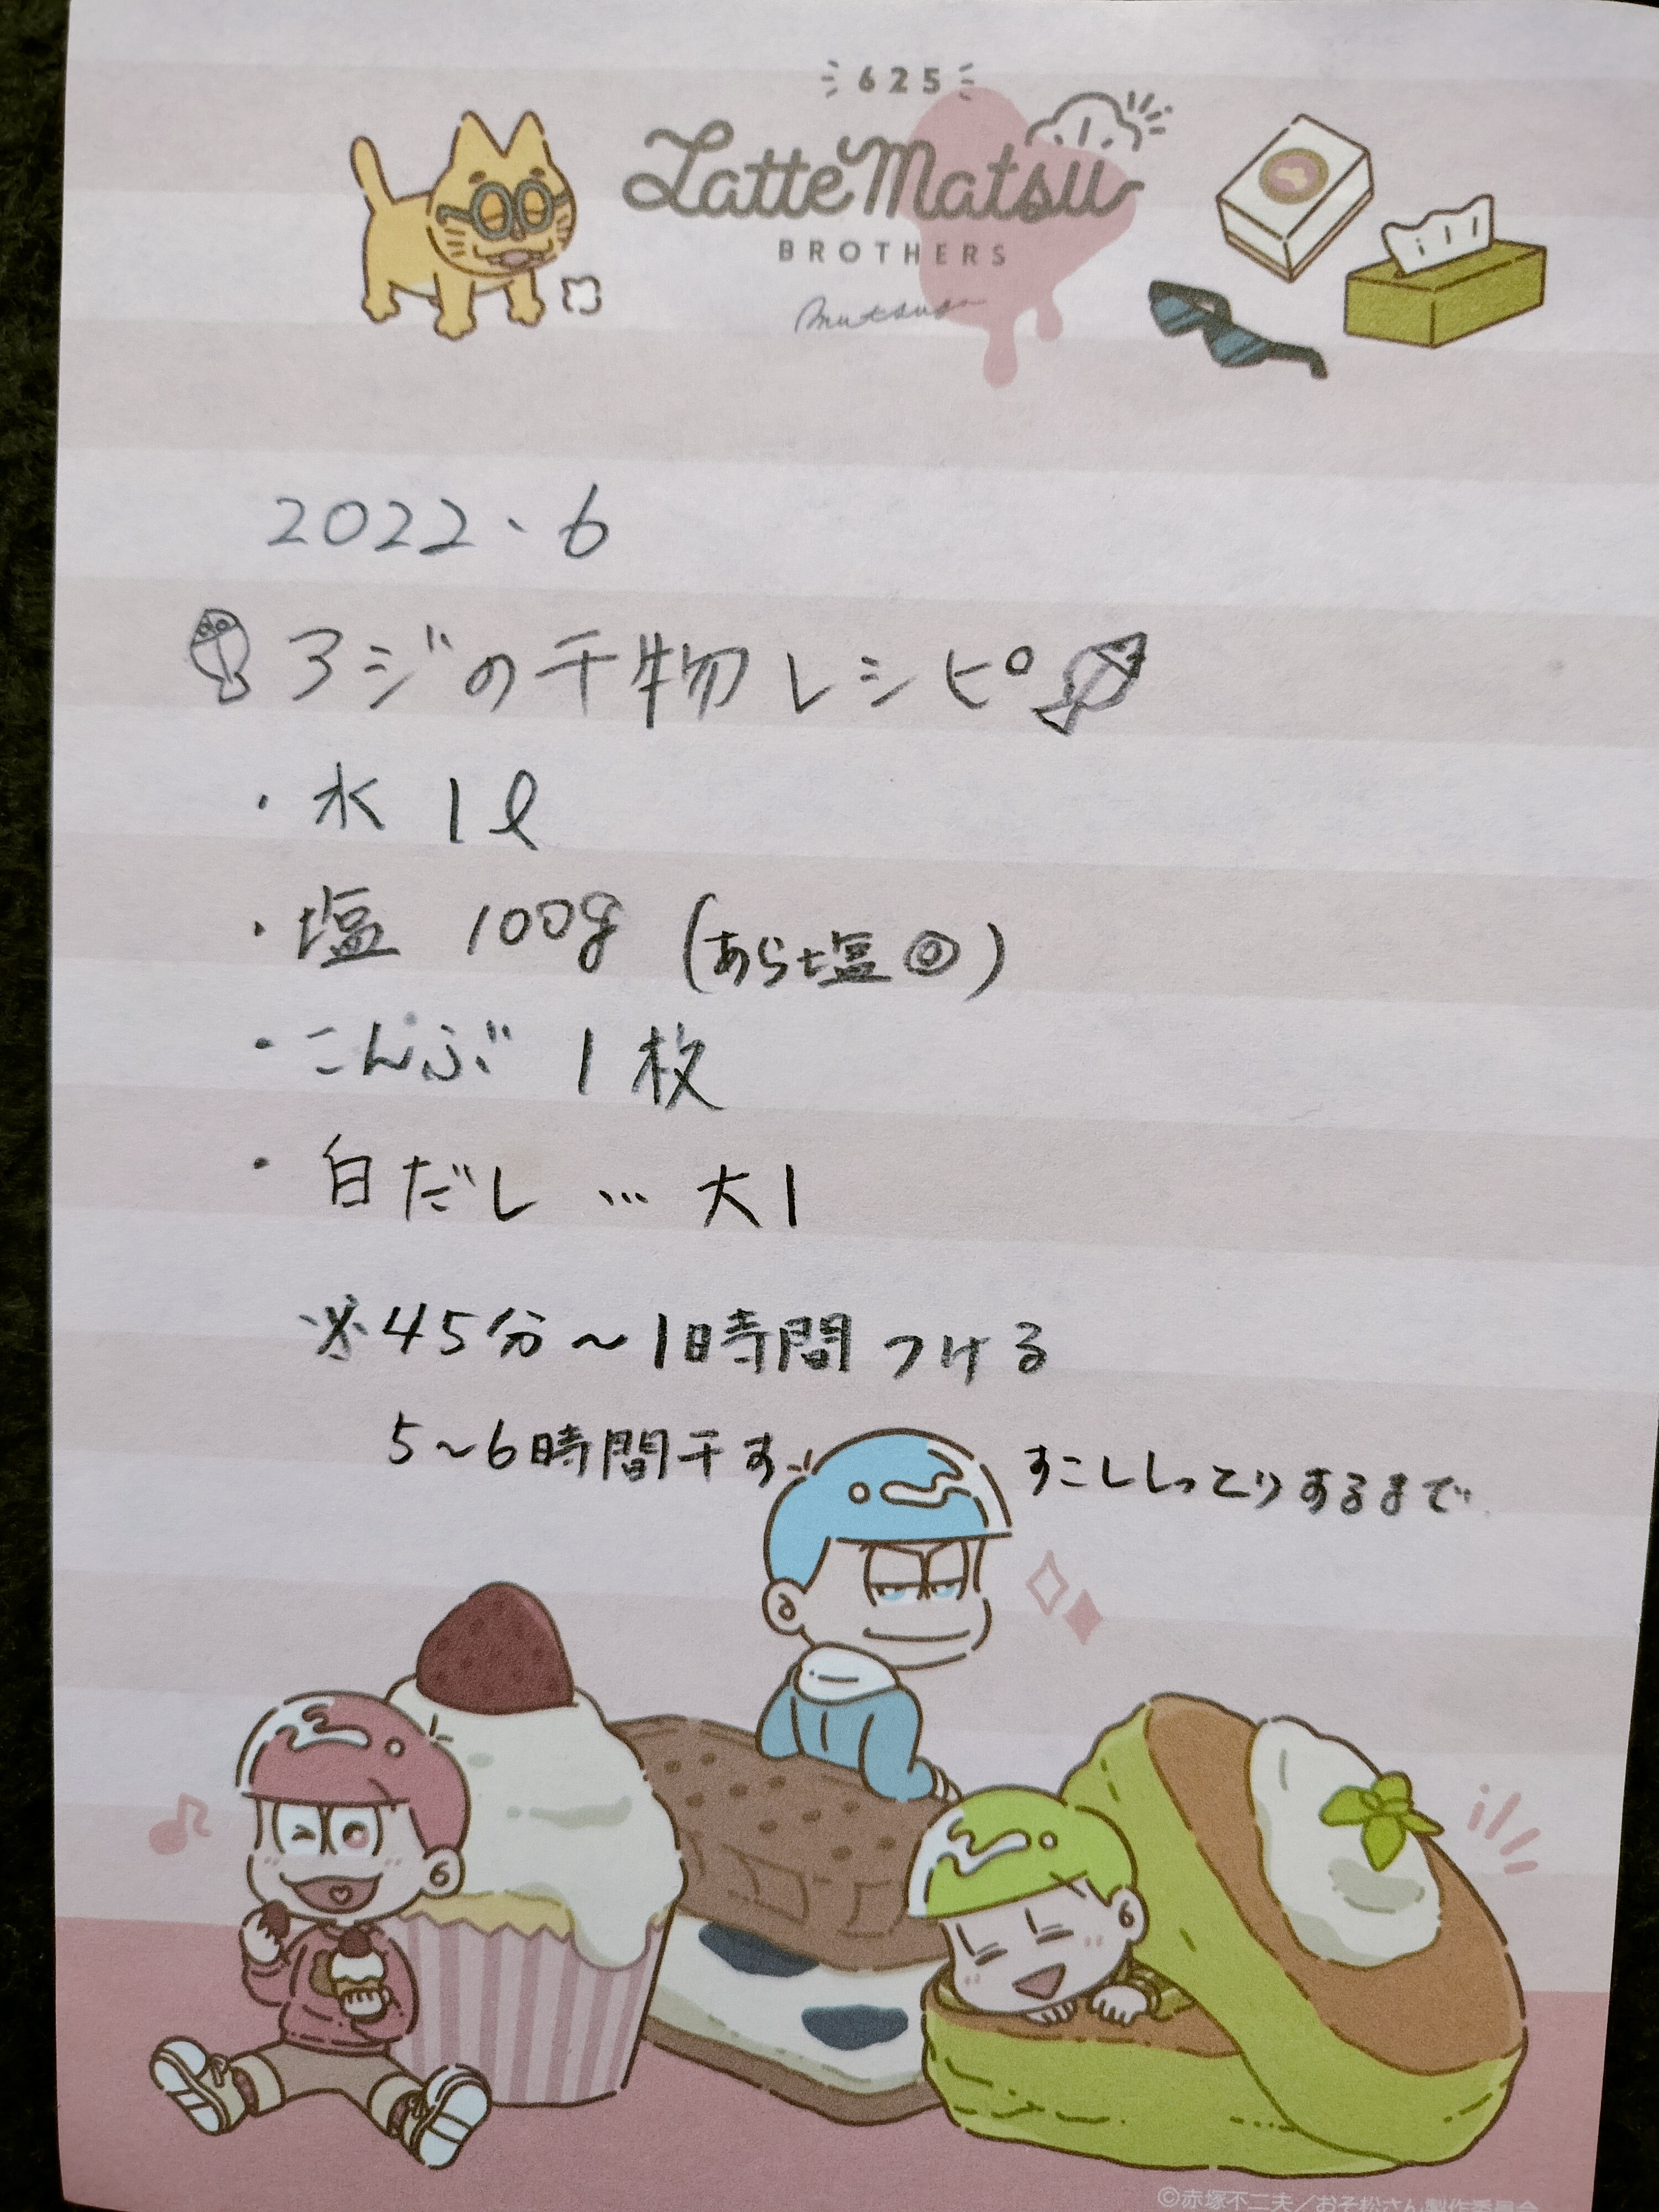 625
Latte Matsu
BROTHERS
2022.6
アジの干物レシピ
・水 1ℓ
・塩 100g (あら塩◎)
・こんぶ 1枚
・白だし … 大1
※45分～1時間つける
5～6時間干す すこししっとりするまで
©赤塚不二夫/おそ松さん製作委員会